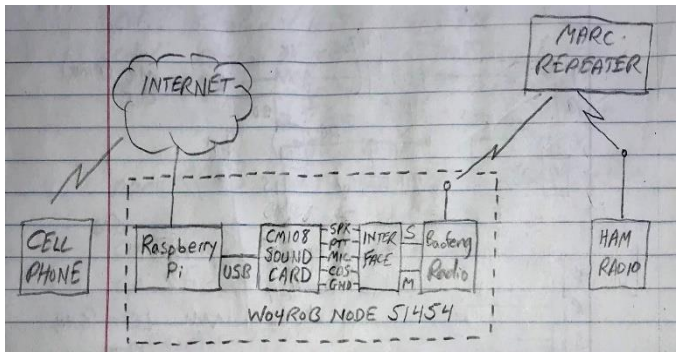 MARC
REPEATER
INTERNET
CELL
PHONE
Raspberry
Pi
USB
CM108
SOUND
CARD
SPK
PTT
MIC
COS
GND
INTER
FACE
S
M
Baofeng
Radio
HAM
RADIO
W0YROB NODE 51454